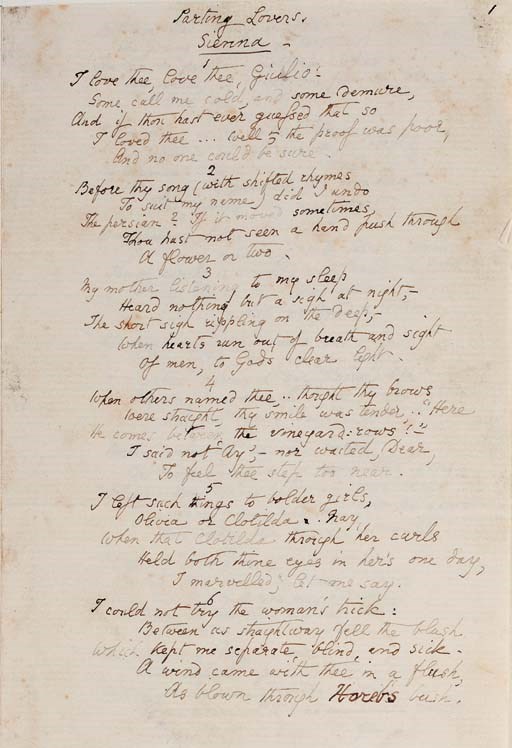 1
Parting Lovers.
Sienna -
1
I love thee, love thee, Giulio:
Some call me cold, and some demure,
And if thou hast ever guessed that so
I loved thee ... well, the proof was poor,
And no one could be sure.
2
Before thy song (with shifted rhymes
To suit my name) did I undo
The persian? If it moved sometimes,
Thou hast not seen a hand push through
A flower or two.
3
My mother listening to my sleep
Heard nothing but a sigh at night,-
The short sigh rippling on the deep,-
When hearts run out of breath and sight
Of men, to Gods clear light.
4
When others named thee,.. thought thy brows
Were straight, thy smile was tender,.. "Here
He comes between the vineyard-rows"!-
I said not Ay!- nor waited, Dear,
To feel thee step too near.
5
I left such things to bolder girls,
Olivia or Clotilda.. Nay
When that Clotilda through her curls
Held both thine eyes in her's one day,
I marvelled; let me say.
6
I could not try the woman's trick:
Between us straightway fell the blush
Which kept me separate, blind, and sick.
A wind came with thee in a flush,
As blown through Horeb's bush.